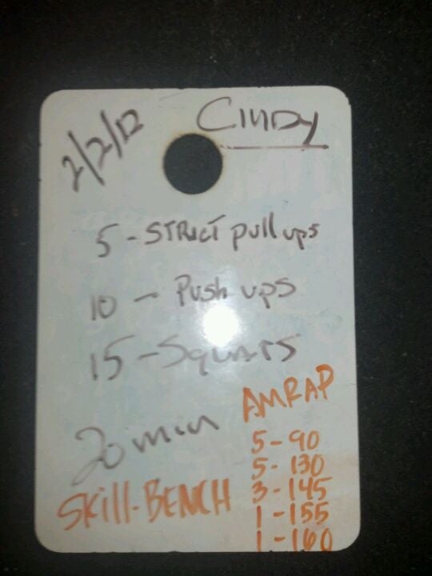 2/2/12 Cindy
5 - STRICT pull ups
10 - Push ups
15 - Squats
20 min AMRAP
5 - 90
5 - 130
3 - 145
SKill - BENCH
1 - 155
1 - 160